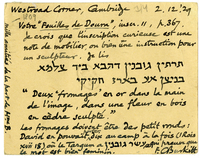 Westroad Corner, Cambridge
Votre "Fouilles de Dourn", inscr. 11, p. 367.
Je crois que l'inscription curieuse est une
note de mobilier ou bien une instruction
pour un sculpteur. Je lis
תרתין גובנין דהבא ביד צלמא
חקיקי
"Deux 'fromages' en or dans la main
de l'image, dans une fleur en bois
en cèdre sculpté."
Les fromages doivent être des petit ronds:
David en portait dix au camp à la fois (I Reis
xvii 18) où le Targum a
mot est bien féminin.
F.C. Burkitt